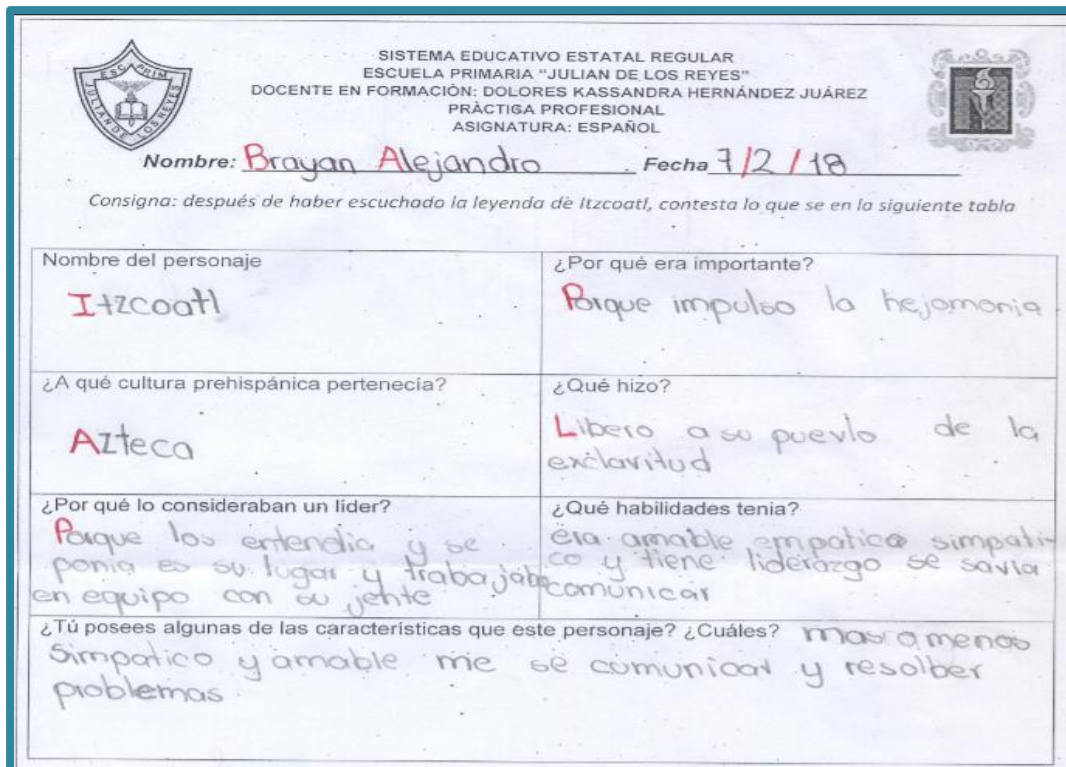 SISTEMA EDUCATIVO ESTATAL REGULAR
ESCUELA PRIMARIA "JULIAN DE LOS REYES"
DOCENTE EN FORMACIÓN: DOLORES KASSANDRA HERNÁNDEZ JUÁREZ
PRÁCTIGA PROFESIONAL
ASIGNATURA: ESPAÑOL
ESC PRIM
JULIAN DE LOS REYES
Nombre: Brayan Alejandro Fecha 7/2/18
Consigna: después de haber escuchado la leyenda de Itzcoatl, contesta lo que se en la siguiente tabla
Nombre del personaje
Itzcoatl
¿Por qué era importante?
Porque impulso la hejomonia
¿A qué cultura prehispánica pertenecía?
Azteca
¿Qué hizo?
Libero a su puevlo de la
exclavitud
¿Por qué lo consideraban un líder?
Porque los entendia y se
ponia es su lugar y trabajaba
en equipo con su jente
¿Qué habilidades tenia?
era amable empatico simpati-
co y tiene liderazgo se savia
comunicar
¿Tú posees algunas de las características que este personaje? ¿Cuáles? mas a menos
Simpatico y amable me se comunicar y resolber
problemas